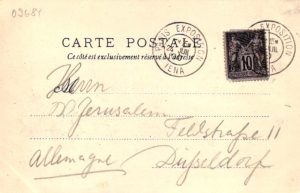 03681
CARTE POSTALE
Ce côté est exclusivement réservé à l'adresse
PARIS EXPOSITION
IENA
EXPOSITION
10
Herrn
Dr Jerusalem
Feldstraße 11
Allemagne Düsseldorf